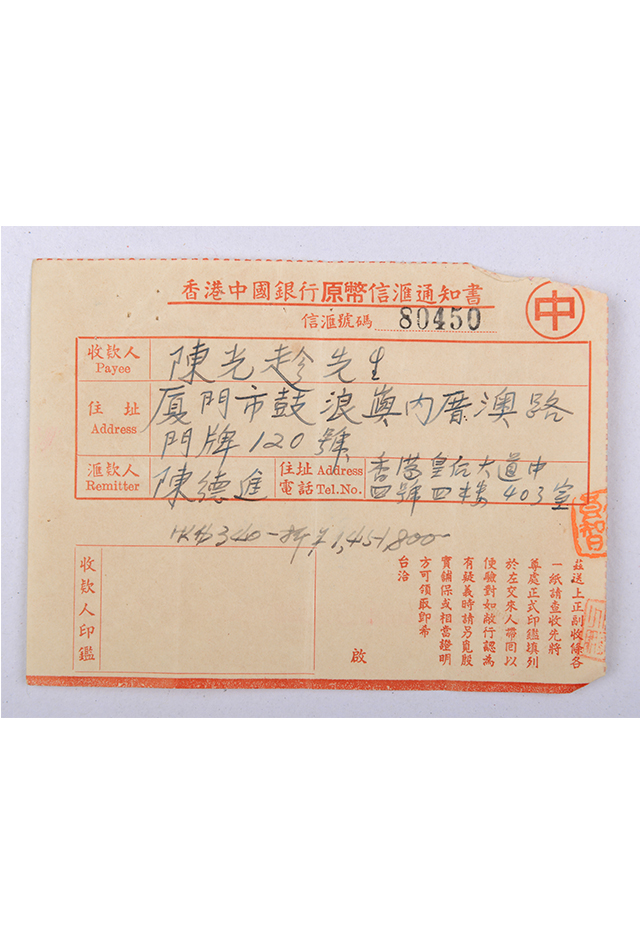 香港中國銀行原幣信滙通知書
中
信滙號碼 80450
收款人 陳光趁先生
Payee
住址 廈門市鼓浪嶼內厝澳路
Address 門牌120號
滙款人 陳德進 住址 Address 香港皇后大道中
Remitter 電話 Tel.No. 四號四樓403室
HK$340-折¥1,451,800-
茲送上正副收條各
一紙請查收先將
尊處正式印鑑填列
於左交來人帶回以
便驗對如敝行認為
有疑義時請另覓殷
實舖保或相當證明
方可領取即希
台洽
啟
收款人印鑑